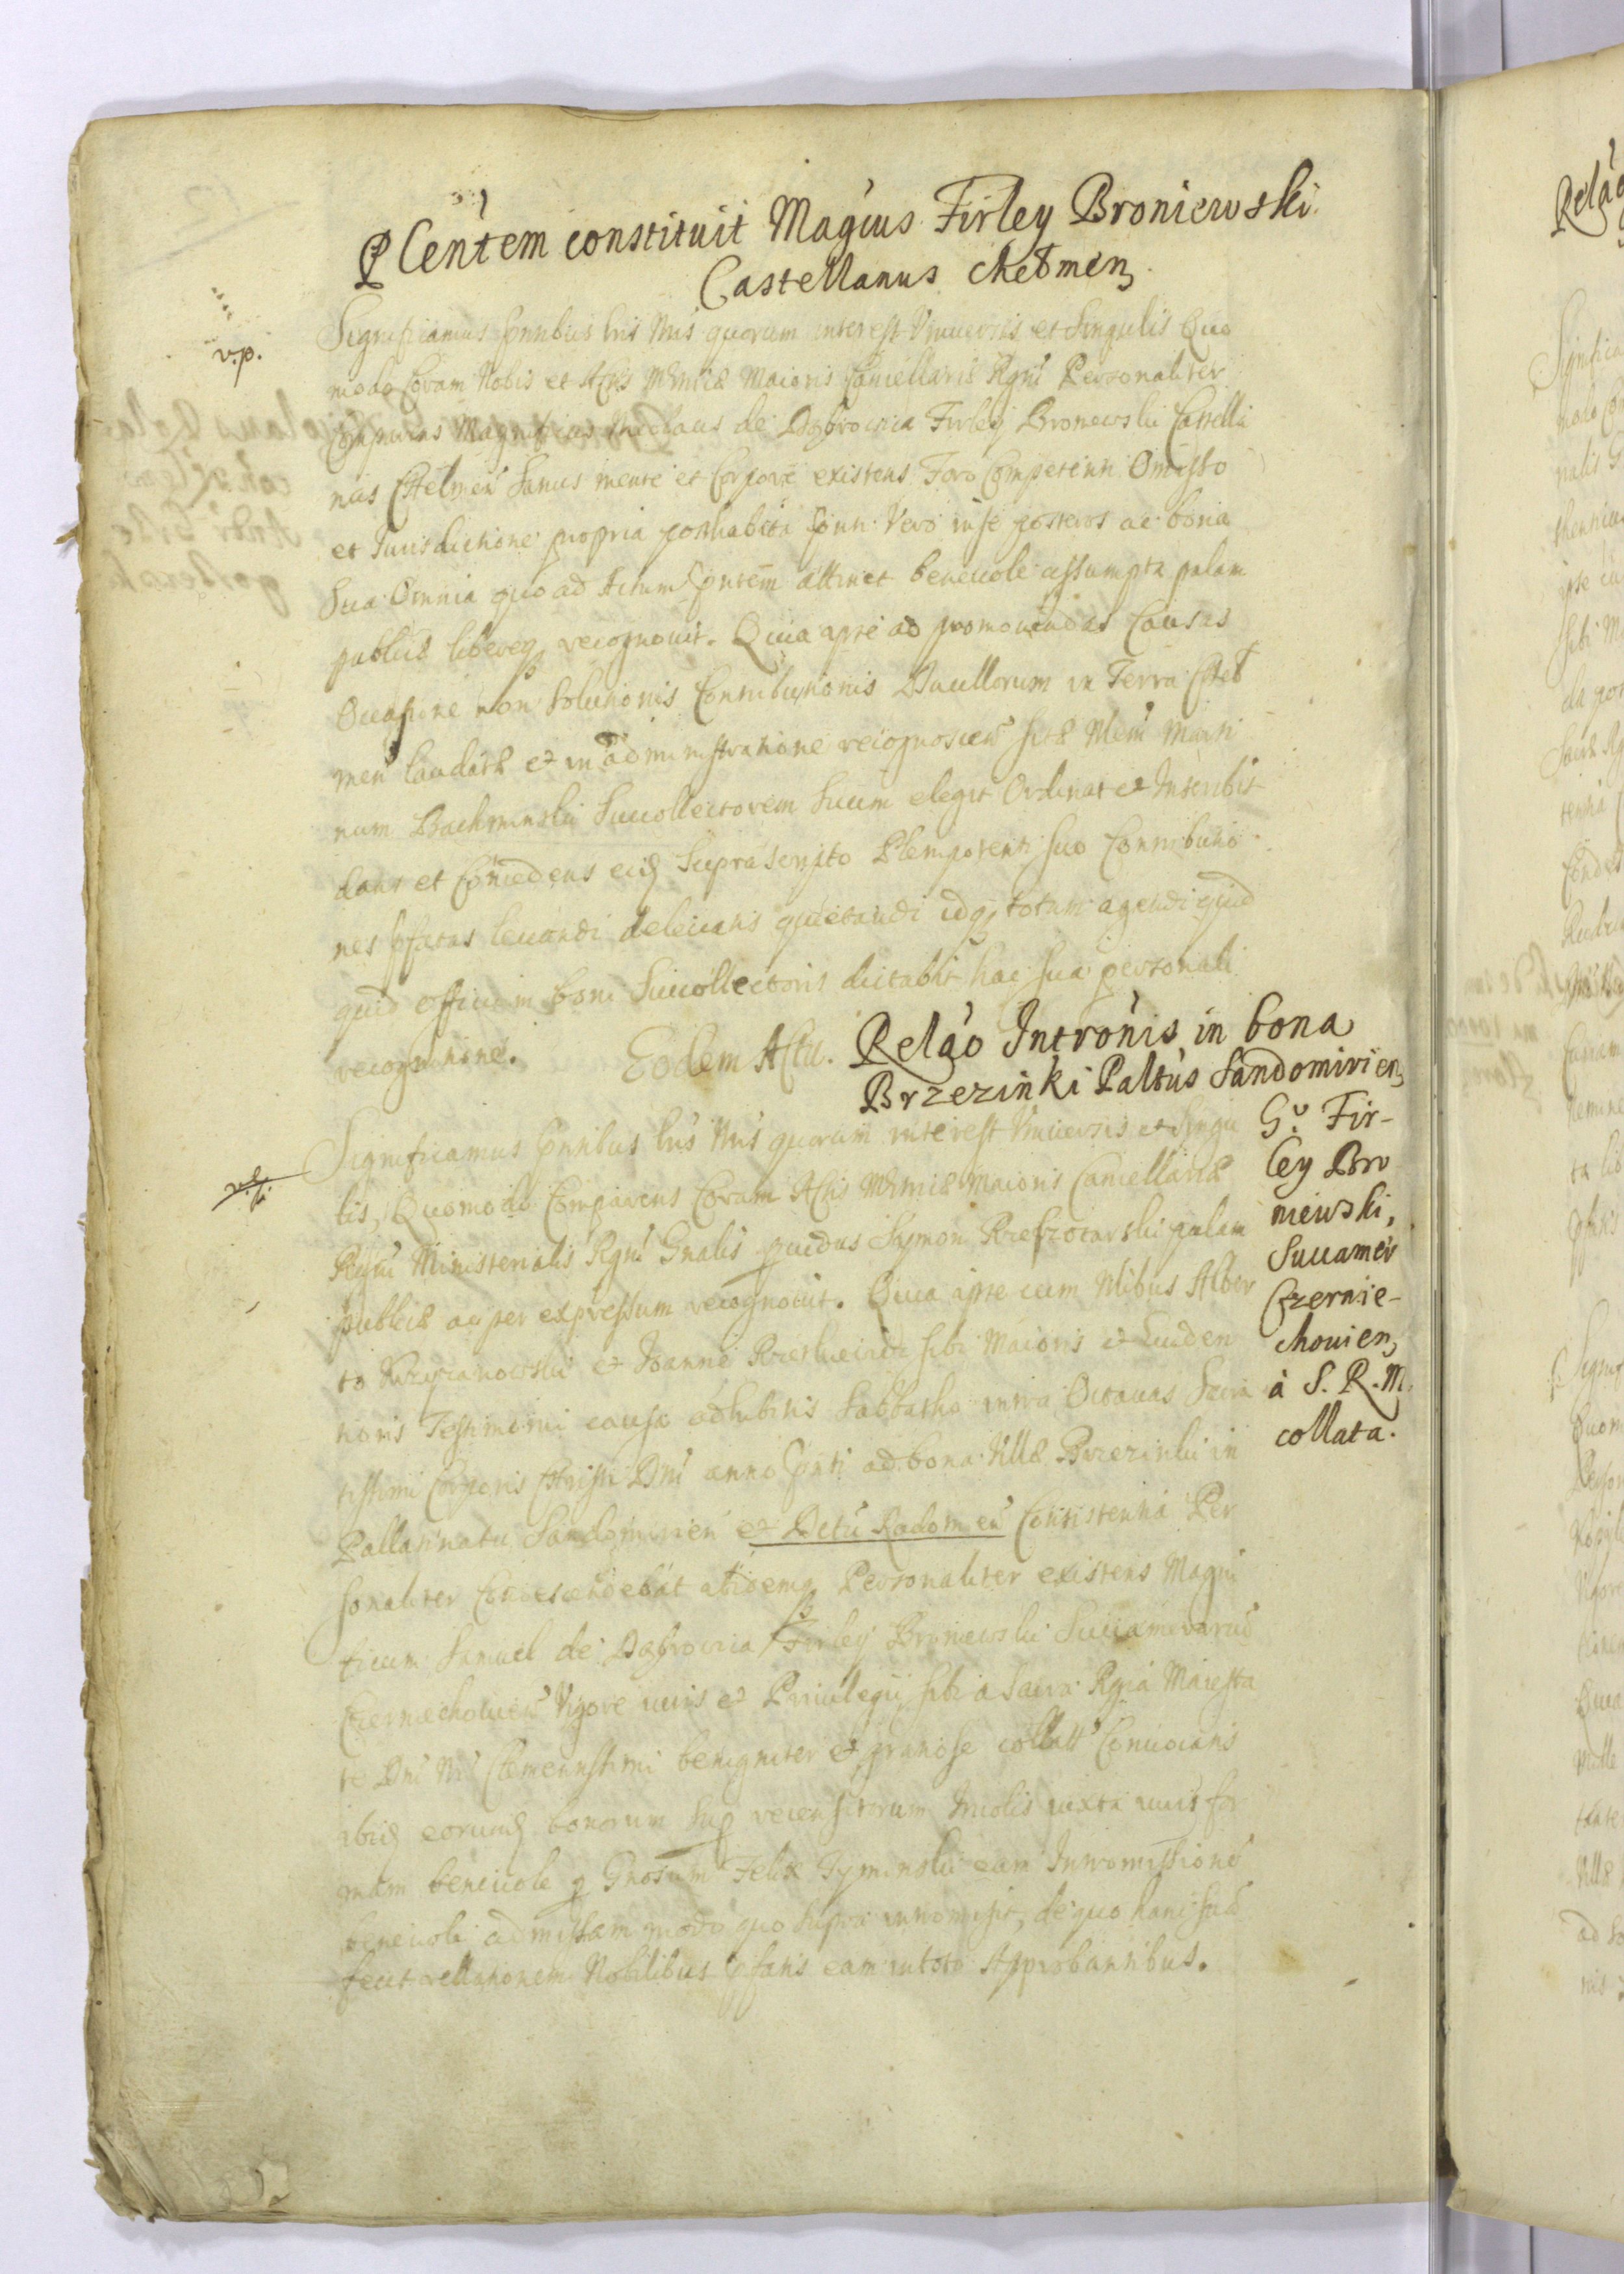 Plentem constituit Magcus Firley Broniewski
Castellanus Chełmen.
v.p.
Significamus pntibus lris Nris quorum interest Vniuersis et Singulis Quo
modo Coram Nobis et Actis Metrices Maioris Cancellariæ Rgni Personaliter
Comparens Magnificus Nicolaus de Dąbrowica Firley Broniewski Castella
nus Chelmeń Sanus mente et Corpore existens Foro Competenti Omisso
et Jurisdictione propria posthabita pnti Vero in se posteros ac bona
sua Omnia quo ad Actum pntem attinet beneuole assumpta palam
publice libereq recognouit. Quia ipse ad promouendas Causas
Occasione non Solutionis Contributionis Ducillorum in Terra Cheł
men laudatæ et in administratione recognoscen Marti
num Bachminski Succollectorem Suum elegit Ordinat et Inscribit
dans et Concedens eid Suprascripto Plenipotenti suo Contributio
nes pfatas leuandi de leuatis quietandi idq totum agendi quid
quid officium boni Succollectoris dictabit hac sua personali
recognitione. Eodem Actu. Relao Intronis in bona
Brzezinki Paltus Sandomirien
Gr Fir-
ley Bro
niewski,
Succamer
Czernie-
chouien,
à S. R. M.
collata.
Significamus pntibus lris Nris quorum interest Vniuersis et Singu
lis, Quomodo Comparens Coram Actis Metrices Maioris Cancellariæ
Regni Ministerialis Rgni Gnalis prouidus Szymon palam
publice ac per expressum recognouit. Quia ipse cum Nlibus Alber
to et Joanne sibi Maioris et Euiden
tioris Testimonii causa adhibitis Sabbatho intra Octauas Sacra
tissimi Corporis Christi Dni anno pnti ad bona Villæ Brzezinki in
Pallatinatu Sandomirien et Dctu Radomen Consistentia Per
sonaliter Condescendebat ibidemq Personaliter existens Magni
ficum Samuel de Dąbrowica Firley Broniewski Succamerariu
Czerniechouien Vigore iuris et Priuilegij sibi a Sacra Rgia Maiesta
te Dni Nri Clementissimi benigniter et gratiose collati Conuocatis
ibid eorund bonorum sup recensitorum Incolis iuxta iuris for
mam beneuole p Gnosum Felix Tyminski eam Intromissione
beneuole admissam modo quo supra intromisit, de quo hanc sua
fecit rellationem Nobilibus pfatis eam in toto Approbantibus.